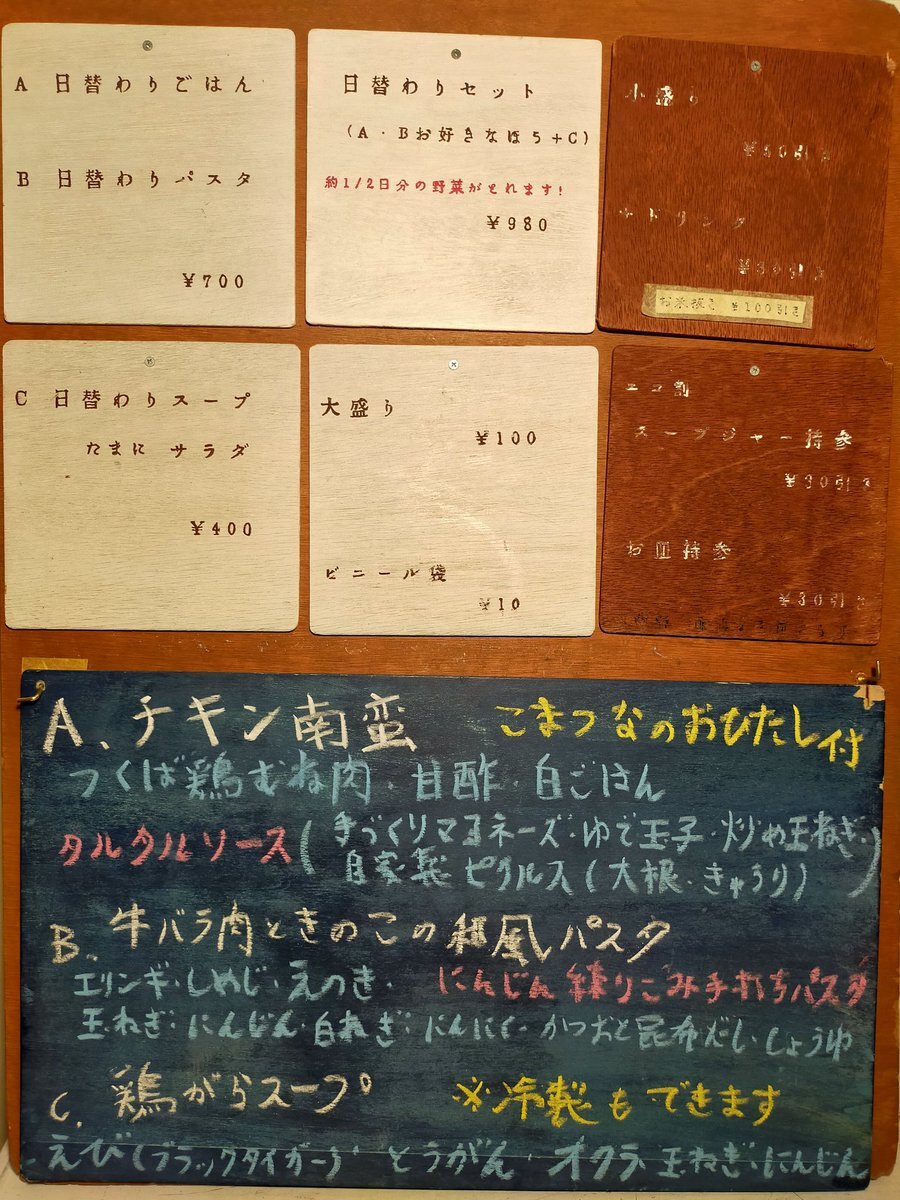 A 日替わりごはん
B 日替わりパスタ
¥700
日替わりセット
(A・Bお好きなほう+C)
約1/2日分の野菜がとれます!
¥980
小盛り
¥50引き
ドリンク
お米抜き ¥100引き
C 日替わりスープ
たまに サラダ
¥400
大盛り
¥100
ビニール袋
¥10
エコ割
スープジャー持参
¥30引き
お皿持参
¥30引き
A、チキン南蛮 こまつなのおひたし付
つくば鶏むね肉・甘酢・白ごはん
タルタルソース(手づくりマヨネーズ・ゆで玉子・炒め玉ねぎ・
自家製ピクルス(大根・きゅうり))
B、牛バラ肉ときのこの和風パスタ
エリンギ・しめじ・えのき・ にんじん練りこみ手打ちパスタ
玉ねぎ・にんじん・白ねぎ・にんにく・かつおと昆布だし・しょうゆ
C、鶏がらスープ ※冷製もできます
えび(ブラックタイガー)・とうがん・オクラ・玉ねぎ・にんじん